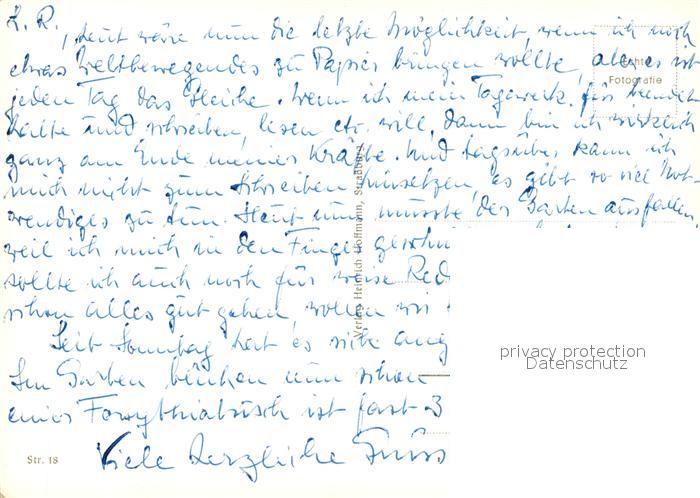 L. R.,
heut wäre nun die letzte Möglichkeit, wenn ich noch
etwas Weltbewegendes zu Papier bringen wollte, aber es ist
jeden Tag das Gleiche. Wenn ich mein Tagewerk für beendet
halte und schreiben, lesen etc. will, dann bin ich wirklich
ganz am Ende meiner Kräfte. Und tagsüber kann ich
mich nicht zum Schreiben hinsetzen, es gibt so viel Not-
wendiges zu tun. Heut nun musste der Garten ausfallen,
weil ich mich in den Finger
sollte ich auch noch für
schon alles gut gehen, wollen wir
Seit Sonntag hat es
Im Garten blühen nun schon
einer Forsythiabusch ist fast 3
Viele herzliche Grüss
Echte
Fotografie
Verlag Heinrich Hoffmann, Strasburg
Str. 18
privacy protection
Datenschutz